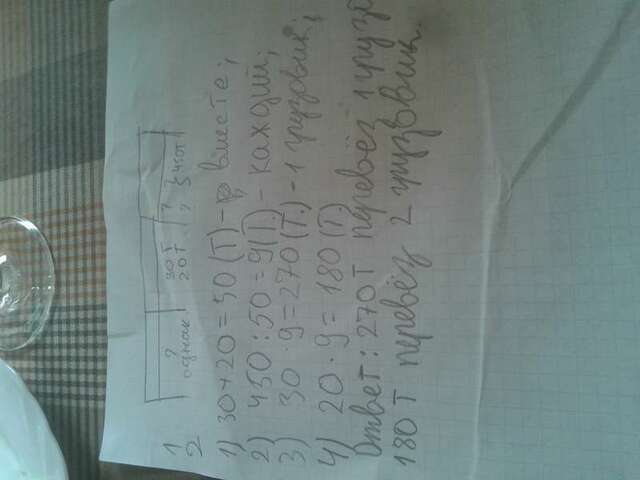 1 ? 30Т ? ?
2 однак 20Т ? 450Т
1) 30+20=50(Т)- вместе;
2) 450:50=9(Т.)- каждий;
3) 30·9=270(Т.)-1 грузовик;
4) 20·9=180(Т)
Ответ: 270Т перевёз 1 грузо
180 Т перевёз 2 грузовик.